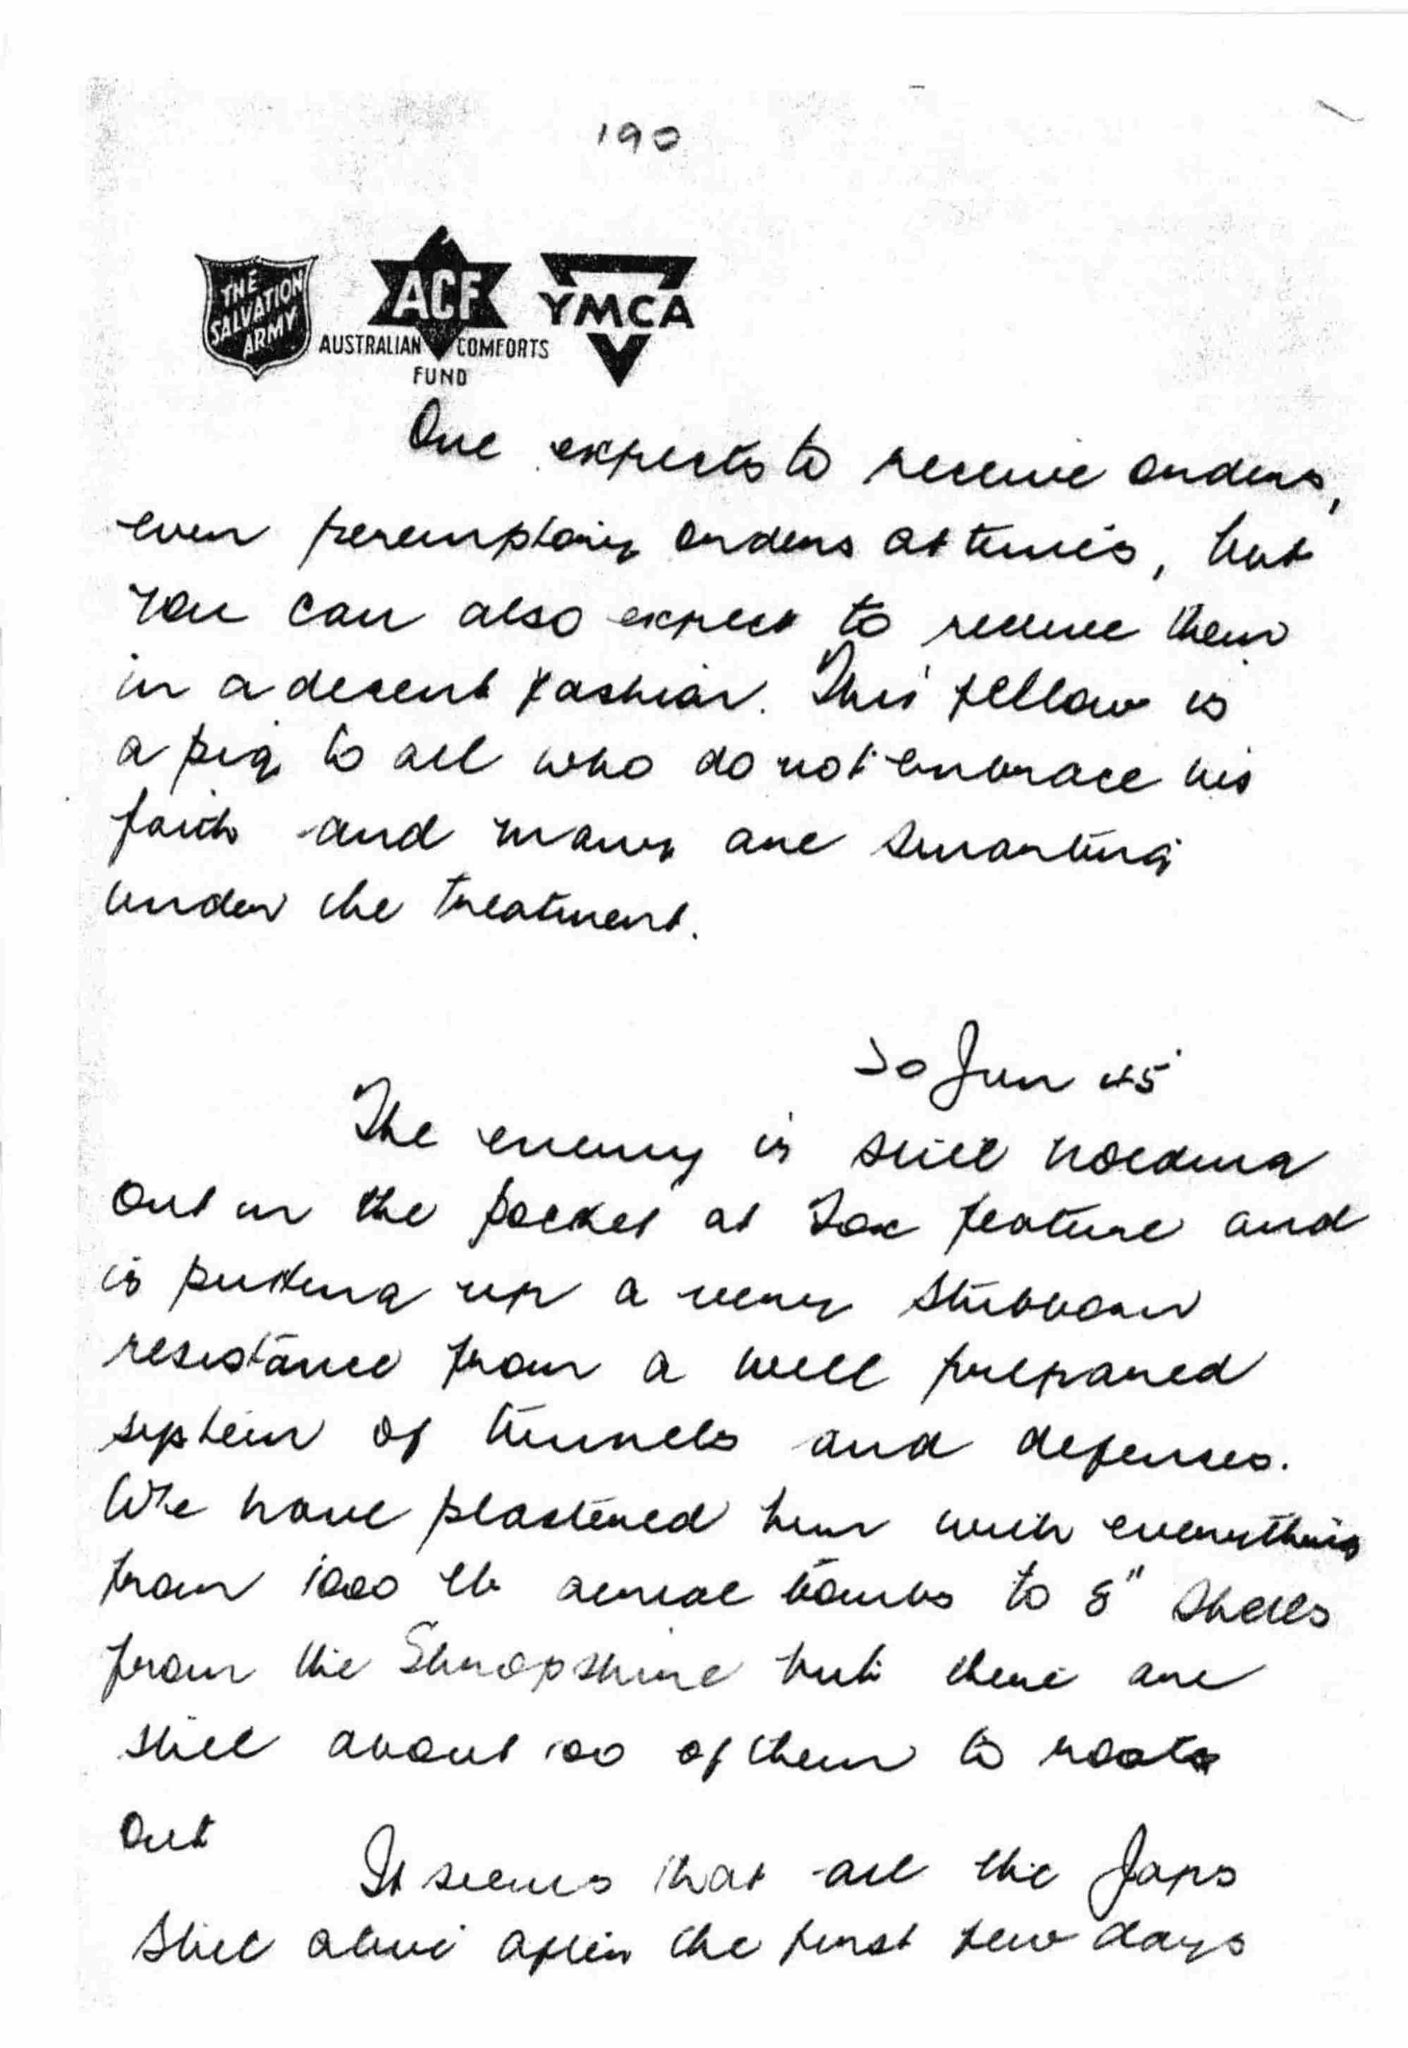 190
THE
SALVATION
ARMY
ACF
AUSTRALIAN COMFORTS
FUND
YMCA
One expects to receive orders,
even peremptory orders at times, but
you can also expect to receive them
in a decent fashion. This fellow is
a pig to all who do not embrace his
faith and many are smarting
under the treatment.
20 Jun 45
The enemy is still holding
out in the pocket at feature and
is putting up a very stubborn
resistance from a well prepared
system of tunnels and defenses.
We have plastered him with everything
from 1000 lb aerial bombs to 8" shells
from the Shropshire but there are
still about 100 of them to root
out
It seems that all the Japs
still alive after the first few days